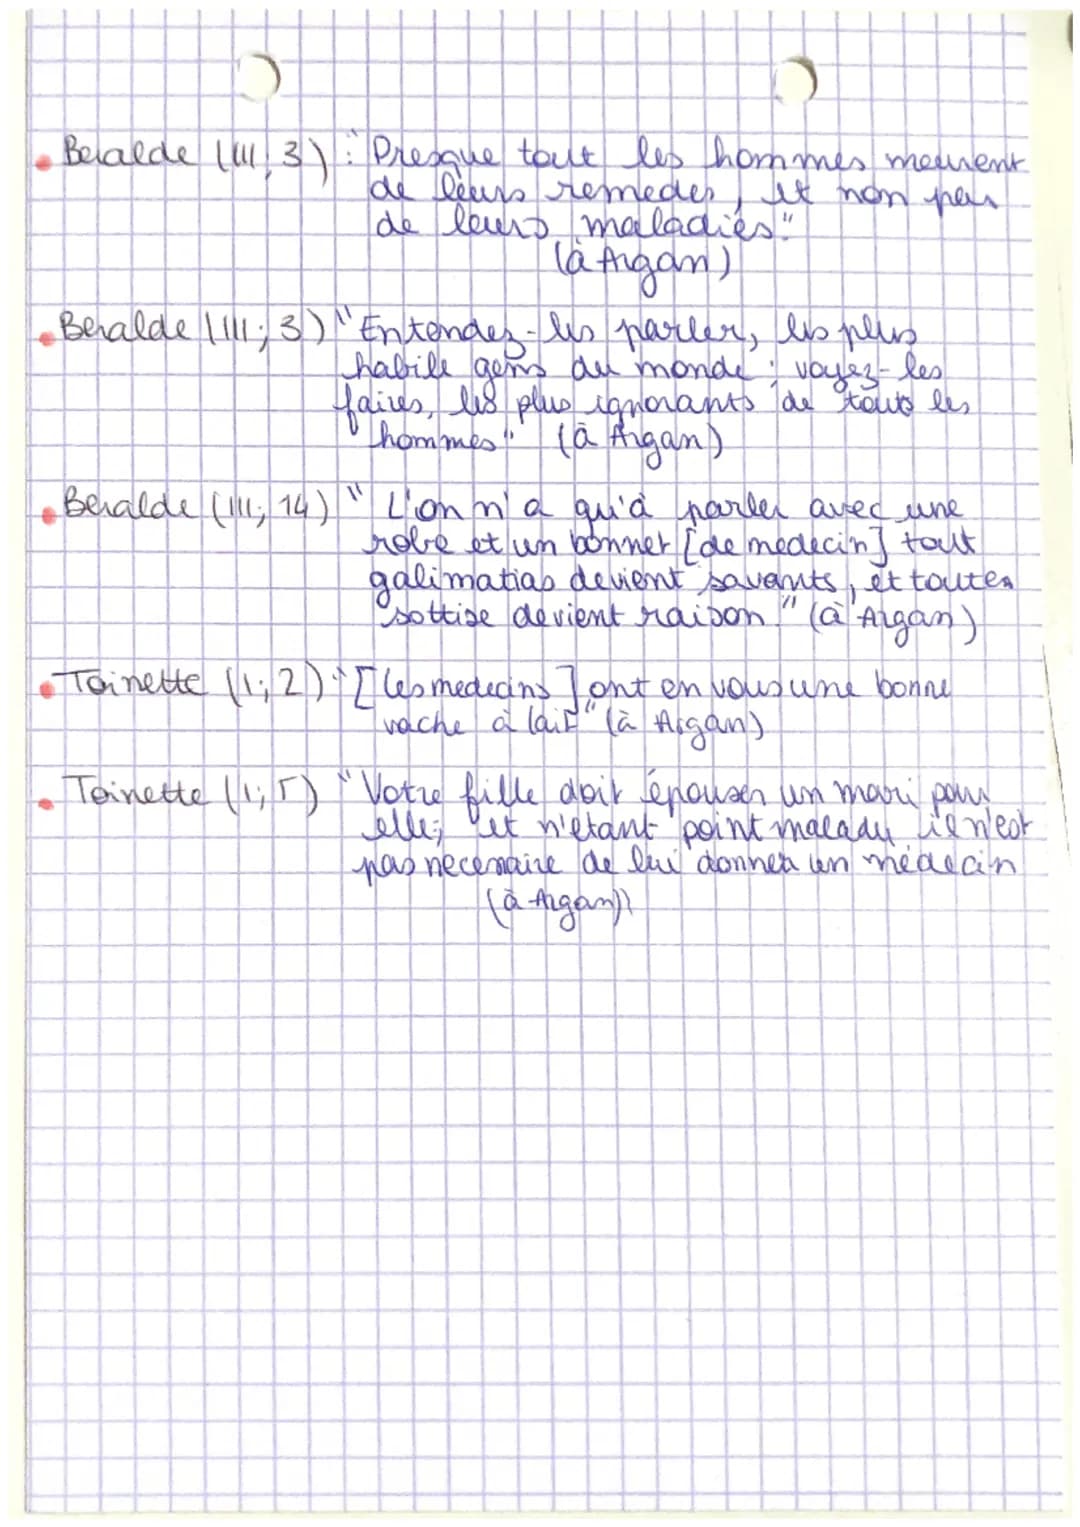 Beralde (III, 3) : "Presque tout les hommes meurent
de leurs remedes, et non pas
de leurs maladies."
(à Argan)
Beralde (III; 3) "Entendez-les parler, les plus
habile gens du monde ; voyez-les
faires, les plus ignorants de touts les
hommes" (à Argan)
Beralde (III; 14) "L'on n'a qu'à parler avec une
robe et un bonnet [de medecin] tout
galimatias devient savants, et toutes
sottise devient raison." (à Argan)
Toinette (1; 2) "[les medecins] ont en vous une bonne
vache à lait" (à Argan)
Toinette (1; 5) "Votre fille doit épouser un mari pour
elle; et n'etant point malade, il n'est
pas necessaire de lui donner un médecin
(à Argan))